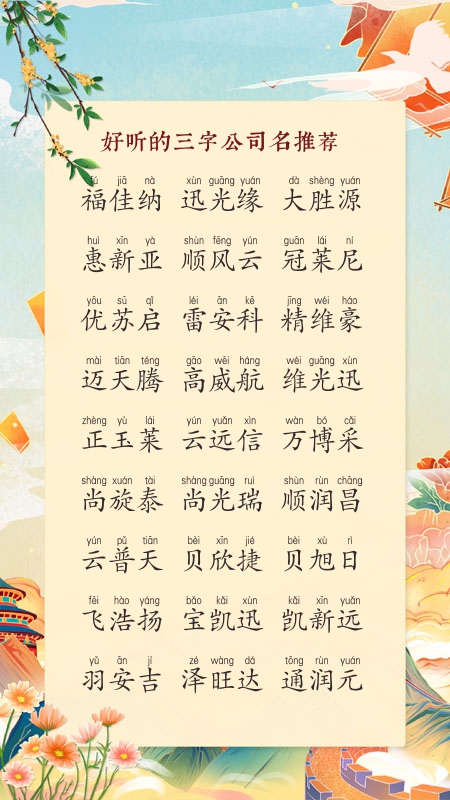 好听的三字公司名推荐
fú jiā nà xùn guāng yuán dà shèng yuán
福佳纳 迅光缘 大胜源
huì xīn yà shùn fēng yún guān lái ní
惠新亚 顺风云 冠莱尼
yōu sū qǐ léi ān kē jīng wéi háo
优苏启 雷安科 精维豪
mài tiān téng gāo wēi háng wéi guāng xùn
迈天腾 高威航 维光迅
zhèng yù lái yún yuǎn xìn wàn bó cǎi
正玉莱 云远信 万博采
shàng xuán tài shàng guāng ruì shùn rùn chāng
尚旋泰 尚光瑞 顺润昌
yún pǔ tiān bèi xīn jié bèi xù rì
云普天 贝欣捷 贝旭日
fēi hào yáng bǎo kǎi xùn kǎi xīn yuǎn
飞浩扬 宝凯迅 凯新远
yǔ ān jí zé wàng dá tōng rùn yuán
羽安吉 泽旺达 通润元